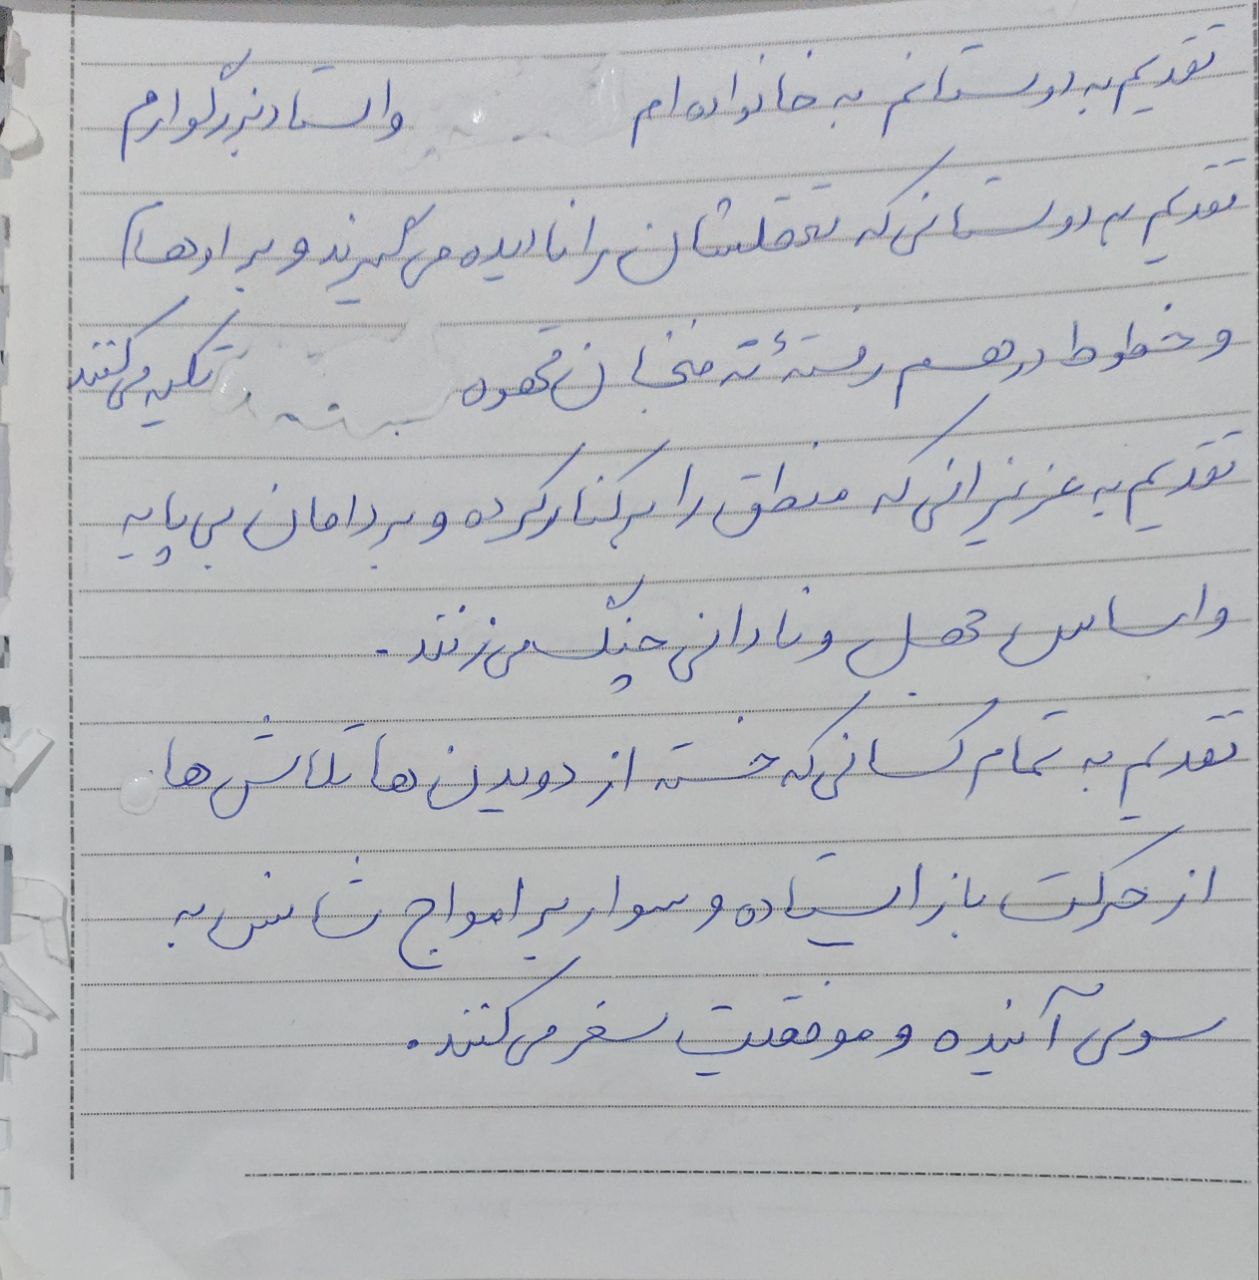 تقدیم به دوستانم به خانواده ام واستاد بزرگوارم
تقدیم به دوستانی که تعقلشان را نادیده می گیرند و بر اوهام
و خطوط درهم رفتهٔ ته فنجان قهوه تکیه می کنند
تقدیم به عزیزانی که منطق را بر کنار کرده و بر دامان بی پایه
و اساس جهل و نادانی چنگ می زنند.
تقدیم به تمام کسانی که خسته از دویدن ها تلاش ها
از حرکت باز ایستاده و سوار بر امواج شانس به
سوی آینده و موفقیت سفر می کنند.